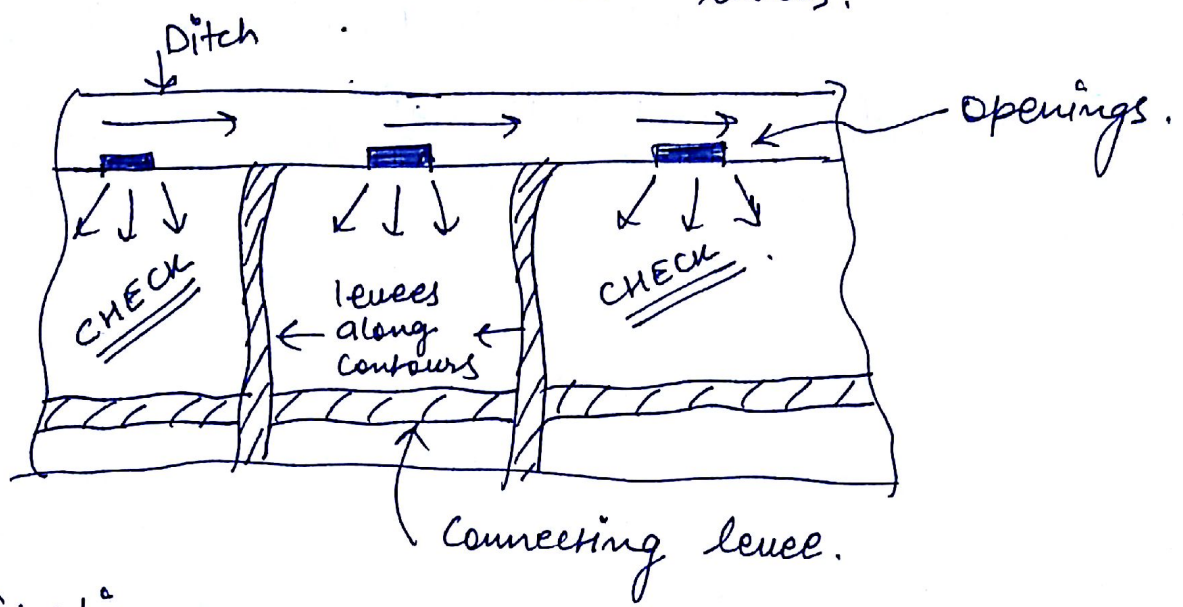 Ditch
openings.
CHECK
levees
along
contours
CHECK
Connecting levee.